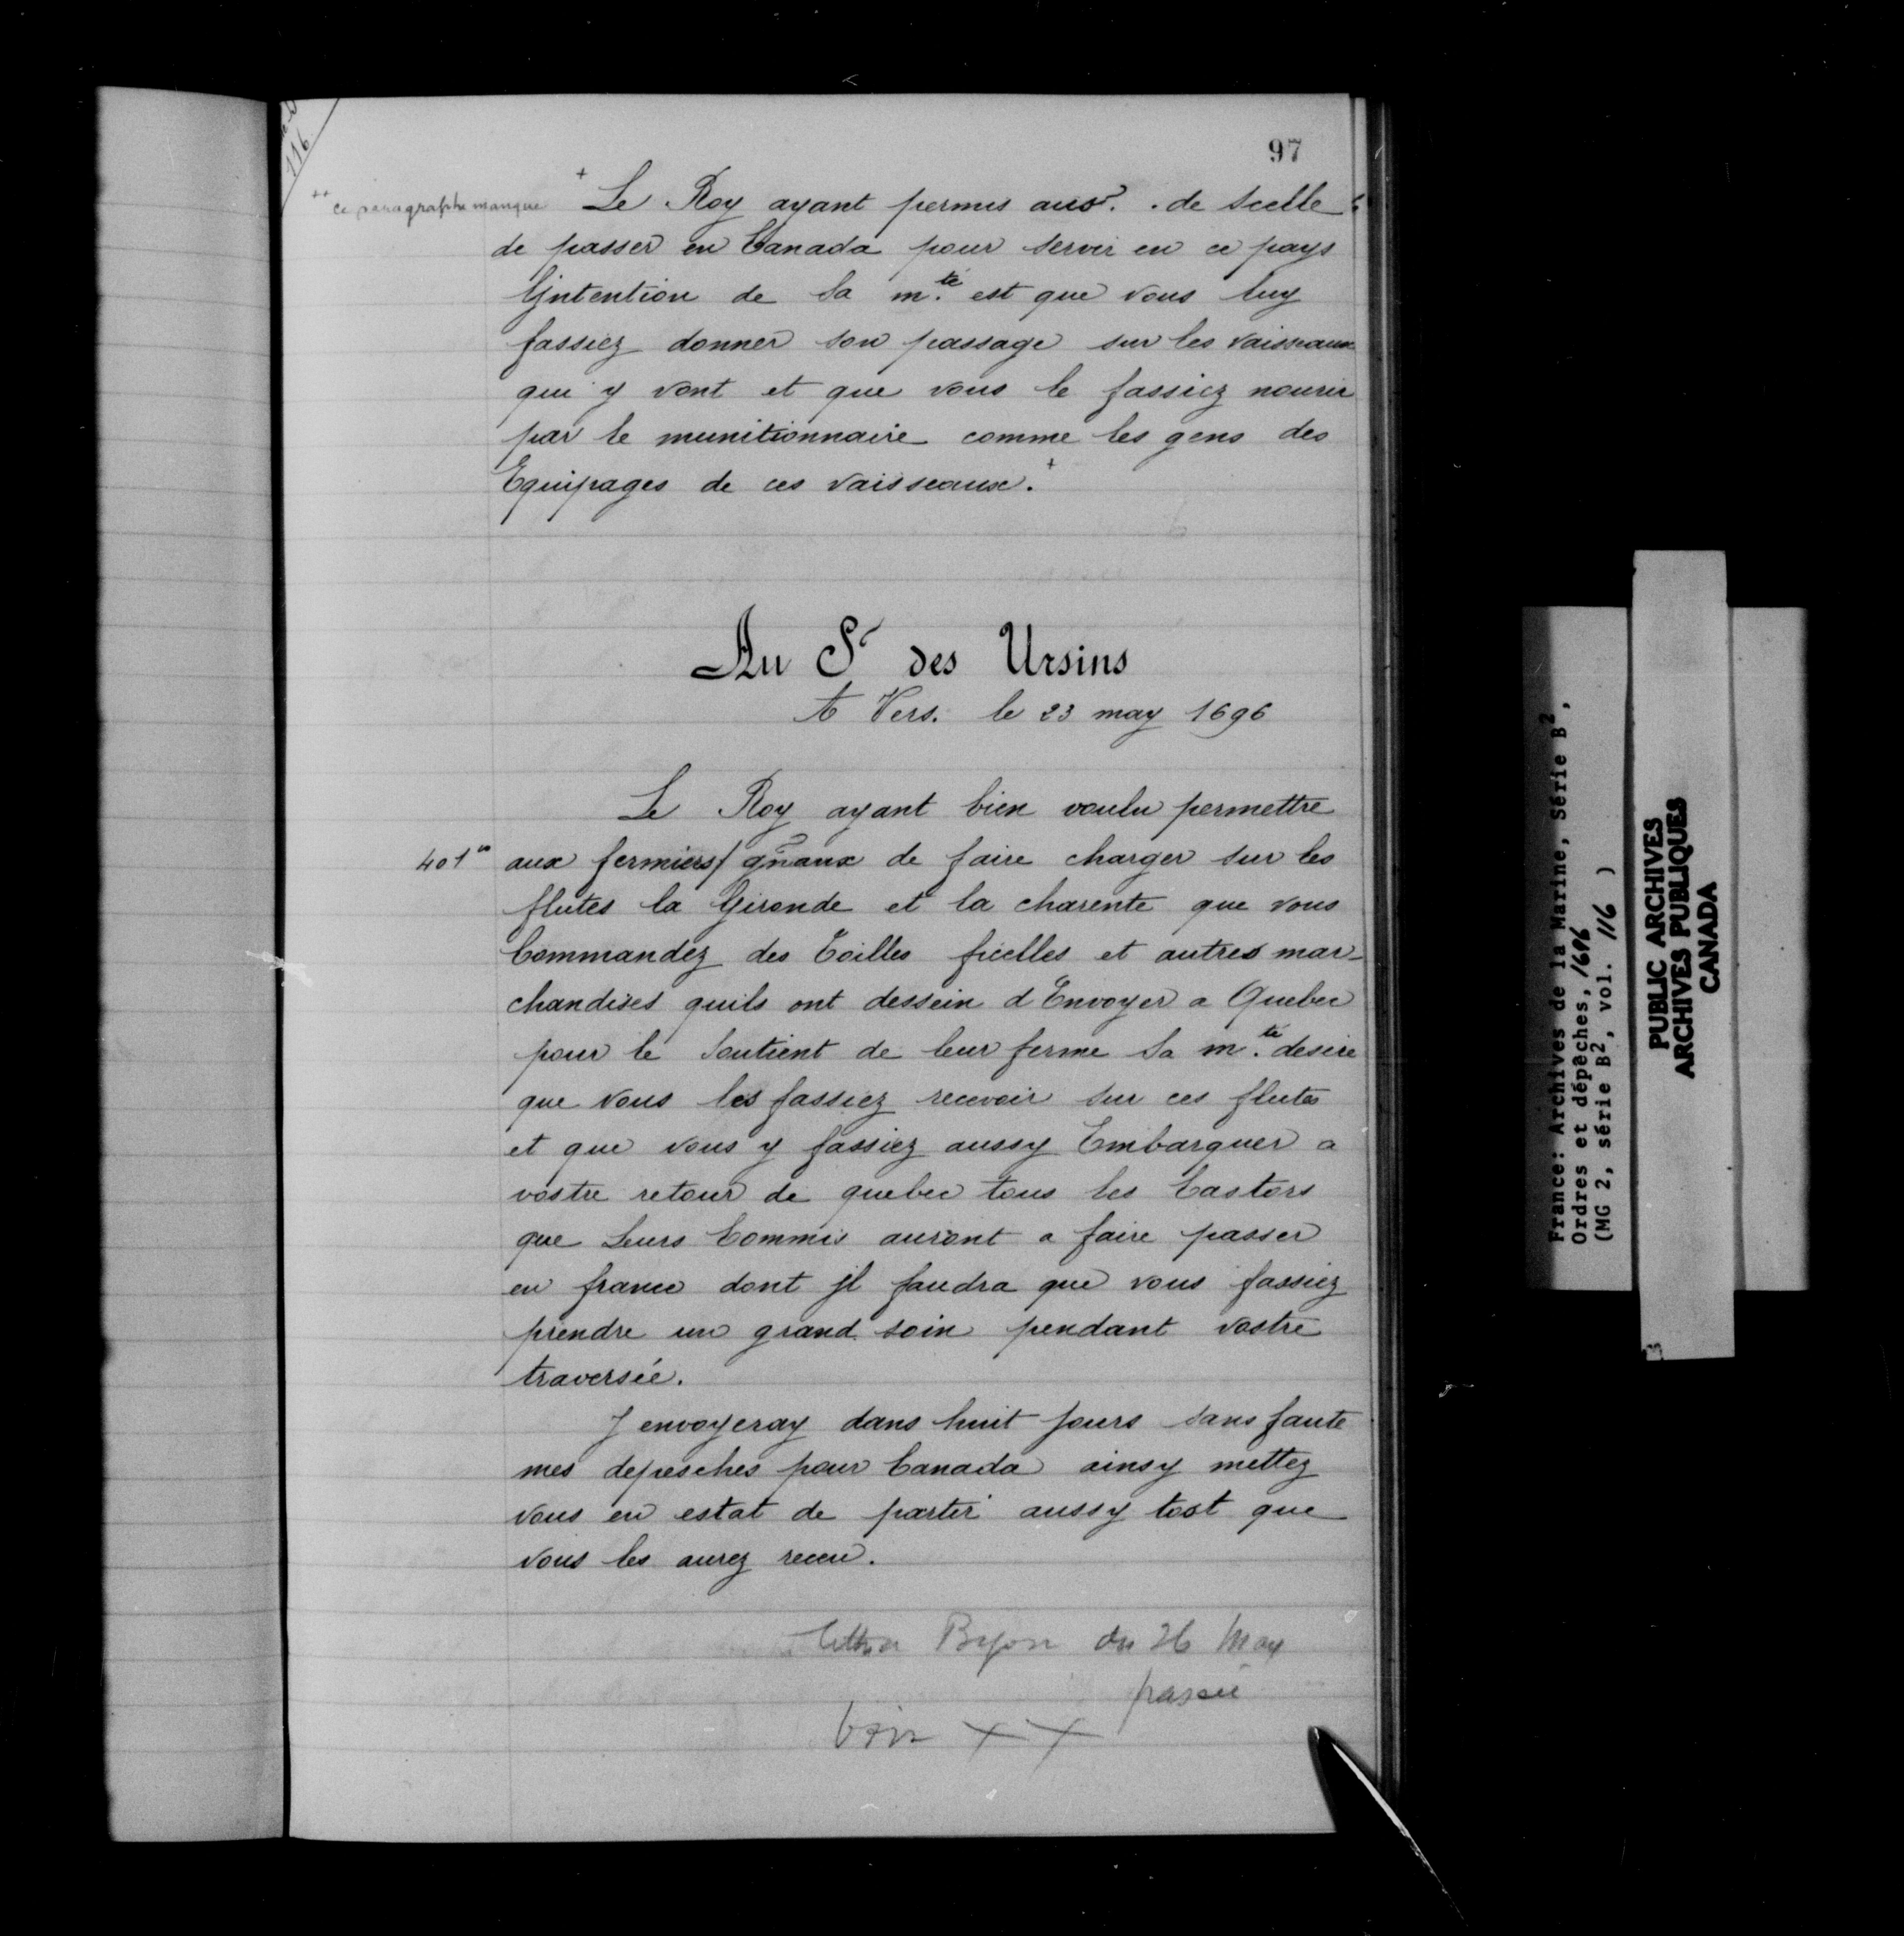 116
97
++ ce paragraphe manque
+ Le Roy ayant permis au Sr. de Scelle
de passer en Canada pour servir en ce pays
L'jntention de Sa m.té est que vous luy
fassiez donner son passage sur les vaisseaux
qui y vont et que vous le fassiez nourir
par le munitionnaire comme les gens des
Equipages de ces vaisseaux. +
Au Sr des Ursins
A Vers. le 23 may 1696
Le Roy ayant bien voulu permettre
401 aux fermiers/ gñaux de faire charger sur les
flutes la Gironde et la charente que vous
Commandez des Toilles ficelles et autres mar-
chandises quils ont dessein d'Envoyer a Quebec
pour le Soutient de leur ferme Sa m.té desire
que vous les fassiez recevoir sur ces flutes
et que vous y fassiez aussy Embarquer a
vostre retour de quebec tous les Castors
que Leurs Commis auront a faire passer
en france dont jl faudra que vous fassiez
prendre un grand soin pendant vostre
traversée.
J envoyeray dans huit jours sans faute
mes depesches pour Canada ainsy mettez
vous en estat de partir aussy tost que
vous les aurez receu.
du 26 May
passé
voir XX
France: Archives de la Marine, Série B2,
Ordres et dépêches, 1696
(MG 2, série B2, vol. 116 )
PUBLIC ARCHIVES
ARCHIVES PUBLIQUES
CANADA